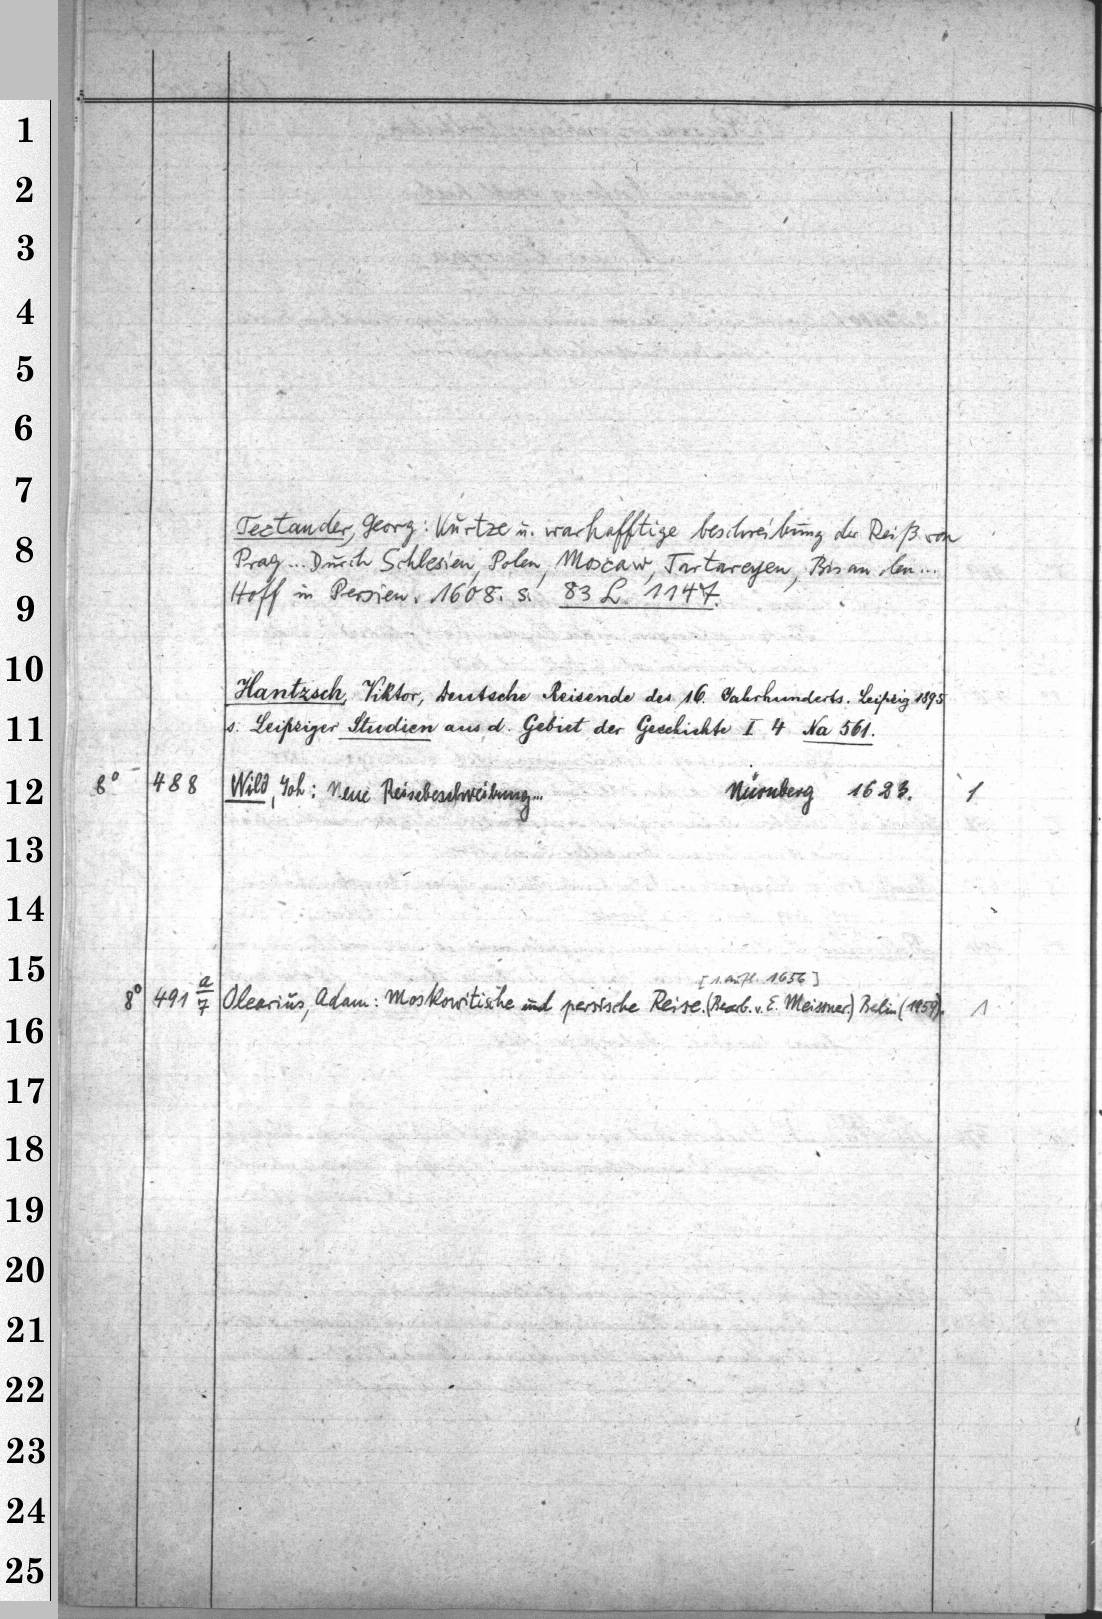 1
2
3
4
5
6
7
Tectander, Georg: Kurtze u. warhafftige beschreibung der Reiß von
8
Prag... Durch Schlesien, Polen, Moscaw, Tartareyen, Bis an den...
9
Hoff in Persien. 1608. s. 83 L. 1147.
10
Hantzsch, Viktor, Deutsche Reisende des 16. Jahrhunderts. Leipzig 1895
11
s. Leipziger Studien aus d. Gebiet der Geschichte I 4 Na 561.
12
8° 488 Wild, Joh: Neue Reisebeschreibung... Nürnberg 1623. 1
13
14
15
[1. Aufl. 1656]
8° 491 a/7 Olearius, Adam: Moskowitische und persische Reise. (Bearb. v. E. Meissner.) Berlin (1959). 1
16
17
18
19
20
21
22
23
24
25